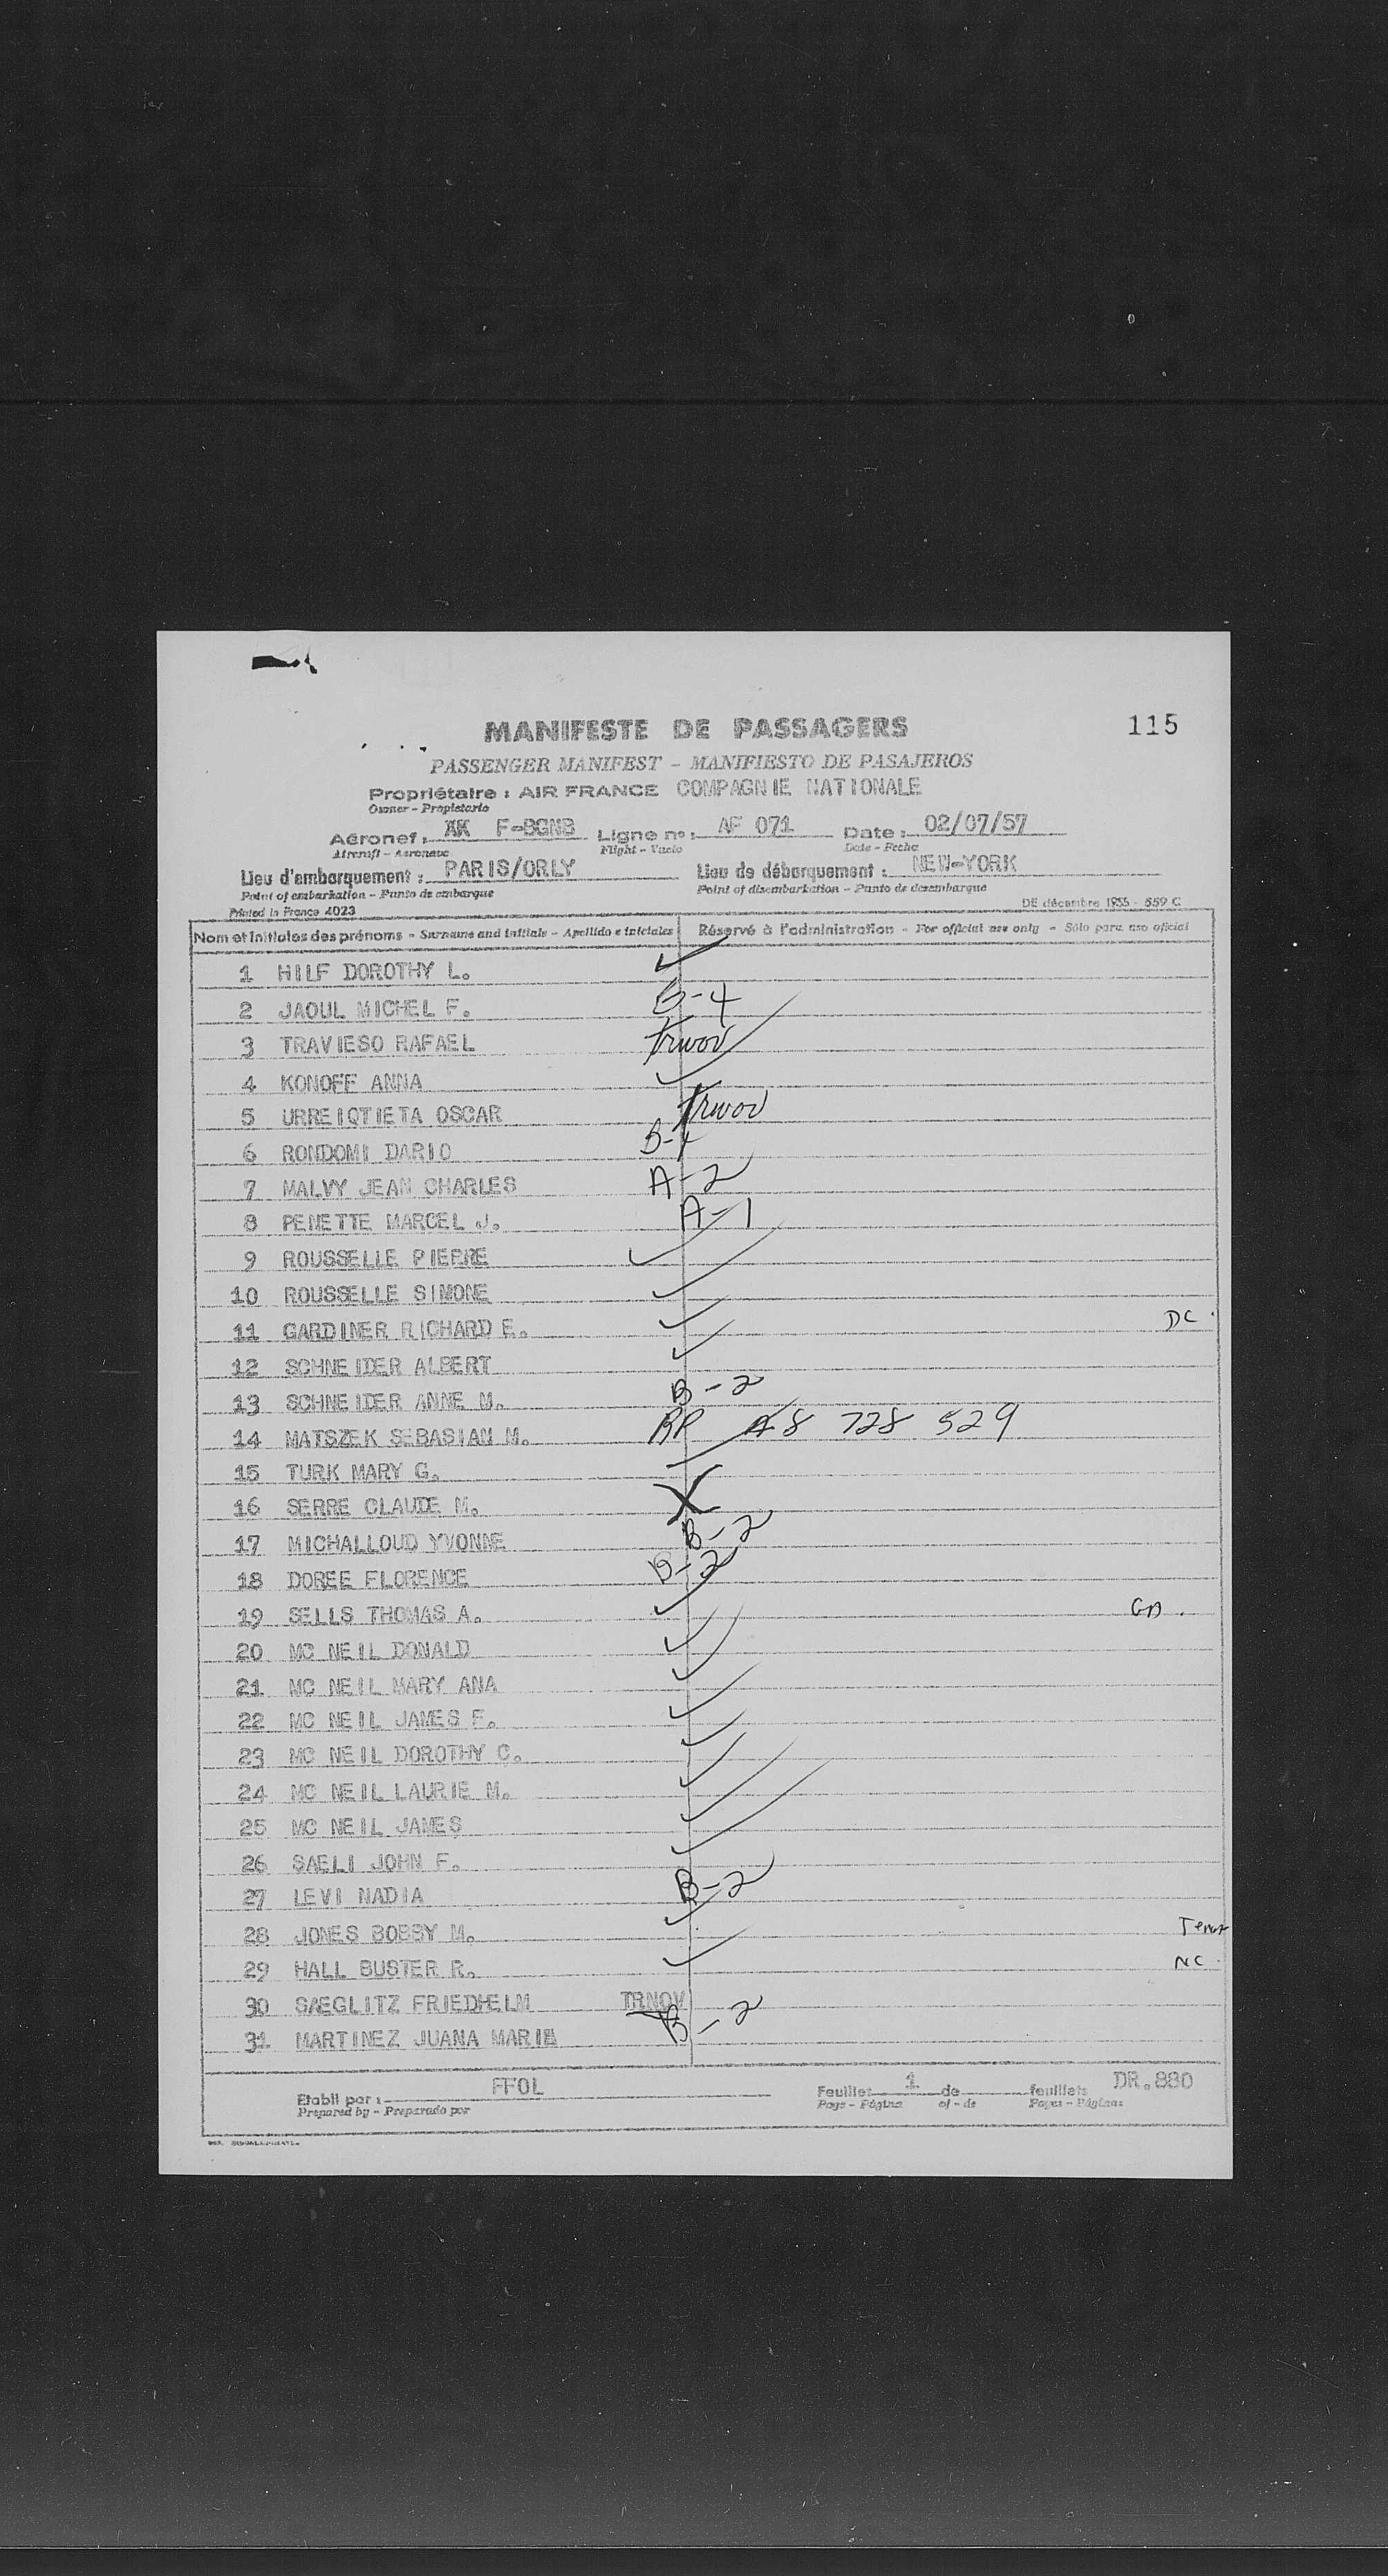 115
MANIFESTE DE PASSAGERS
PASSENGER MANIFEST - MANIFIESTO DE PASAJEROS
Propriétaire : AIR FRANCE COMPAGNIE NATIONALE
Owner - Propietario
Aéronef : F-BGNB Ligne n° : AF 071 Date : 02/07/57
Aircraft - Aeronave Flight - Vuelo Date - Fecha
Lieu d'embarquement : PARIS/ORLY Lieu de débarquement : NEW-YORK
Point of embarkation - Punto de embarque Point of disembarkation - Punto de desembarque
Printed in France 4023 DE décembre 1955 - 559 C
Nom et initiales des prénoms - Surname and initials - Apellido e iniciales Réservé à l'administration - For official use only - Sólo para uso oficial
1 HILF DOROTHY L.
2 JAOUL MICHEL F. G-4
3 TRAVIESO RAFAEL Trwov
4 KONOFF ANNA
5 URREIQTIETA OSCAR Trwov
6 RONDOMI DARIO
7 MALVY JEAN CHARLES A-2
8 PENETTE MARCEL J. A-1
9 ROUSSELLE PIERRE
10 ROUSSELLE SIMONE
11 GARDINER RICHARD E. DC.
12 SCHNEIDER ALBERT
13 SCHNEIDER ANNE M. B-2
14 MATSZEK SEBASIAN M. RP A8 728 529
15 TURK MARY G.
16 SERRE CLAUDE M. X
17 MICHALLOUD YVONNE B-2
18 DOREE FLORENCE B-2
19 SELLS THOMAS A.
20 MC NEIL DONALD
21 MC NEIL MARY ANA
22 MC NEIL JAMES F.
23 MC NEIL DOROTHY C.
24 MC NEIL LAURIE M.
25 MC NEIL JAMES
26 SAELI JOHN F.
27 LEVI NADIA B-2
28 JONES BOBBY M.
29 HALL BUSTER R. NC.
30 SAEGLITZ FRIEDHELM TRNOV
31 MARTINEZ JUANA MARIE B-2
Etabli par : FFOL Feuillet 1 de feuillets DR.880
Prepared by - Preparado por Page - Página of - de Pages - Páginas